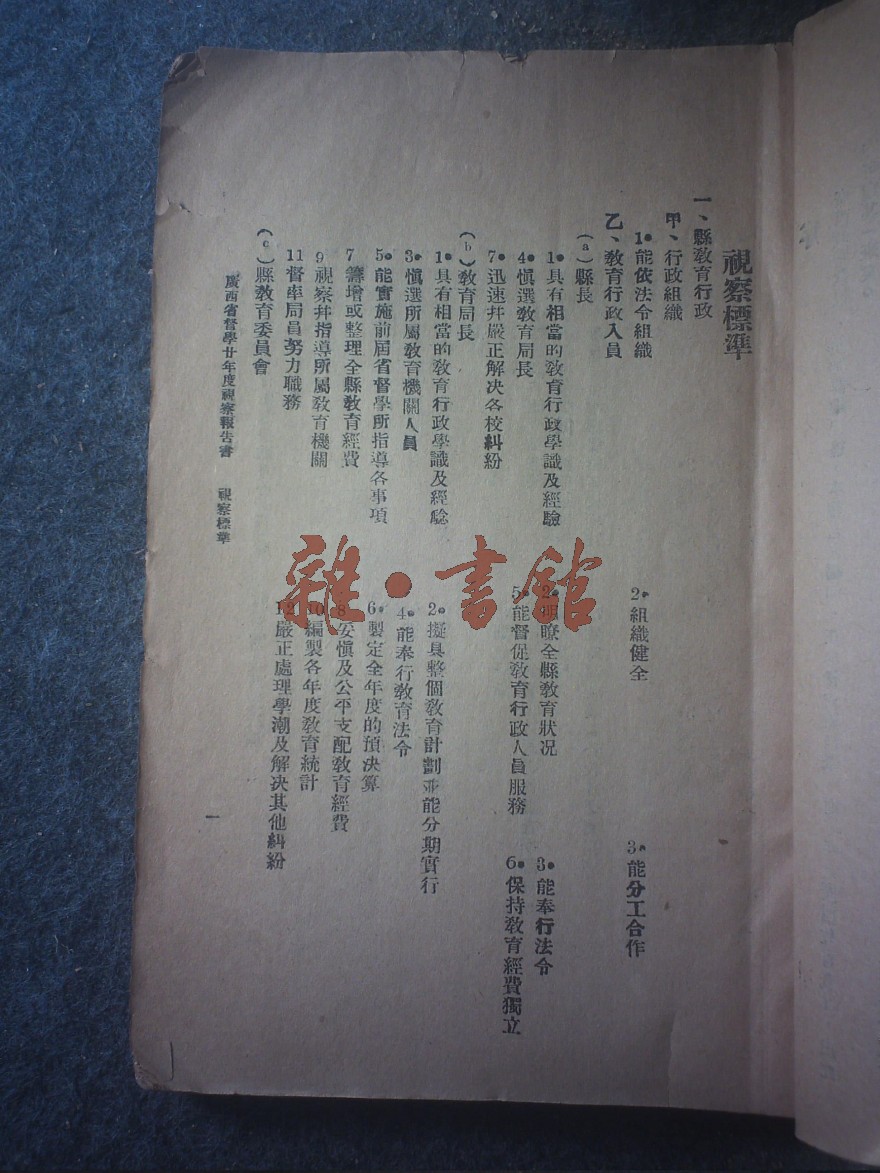 視察標準
一、縣教育行政
甲、行政組織
1.能依法令組織 2.組織健全 3.能分工合作
乙、教育行政人員
(a)縣長
1.具有相當的教育行政學識及經驗 2.明瞭全縣教育狀况 3.能奉行法令
4.慎選教育局長 5.能督促教育行政人員服務 6.保持教育經費獨立
7.迅速并嚴正解决各校糾紛
(b)教育局長
1.具有相當的教育行政學識及經騐 2.擬具整個教育計劃並能分期實行
3.慎選所屬教育機關人員 4.能奉行教育法令
5.能實施前屆省督學所指導各事項 6.製定全年度的預决算
7籌增或整理全縣教育經費 8妥慎及公平支配教育經費
9視察并指導所屬教育機關 10編製各年度教育統計
11督率局員努力職務 12嚴正處理學潮及解决其他糾紛
(c)縣教育委員會
廣西省督學廿年度視察報告書 視察標準 一
雜·書館